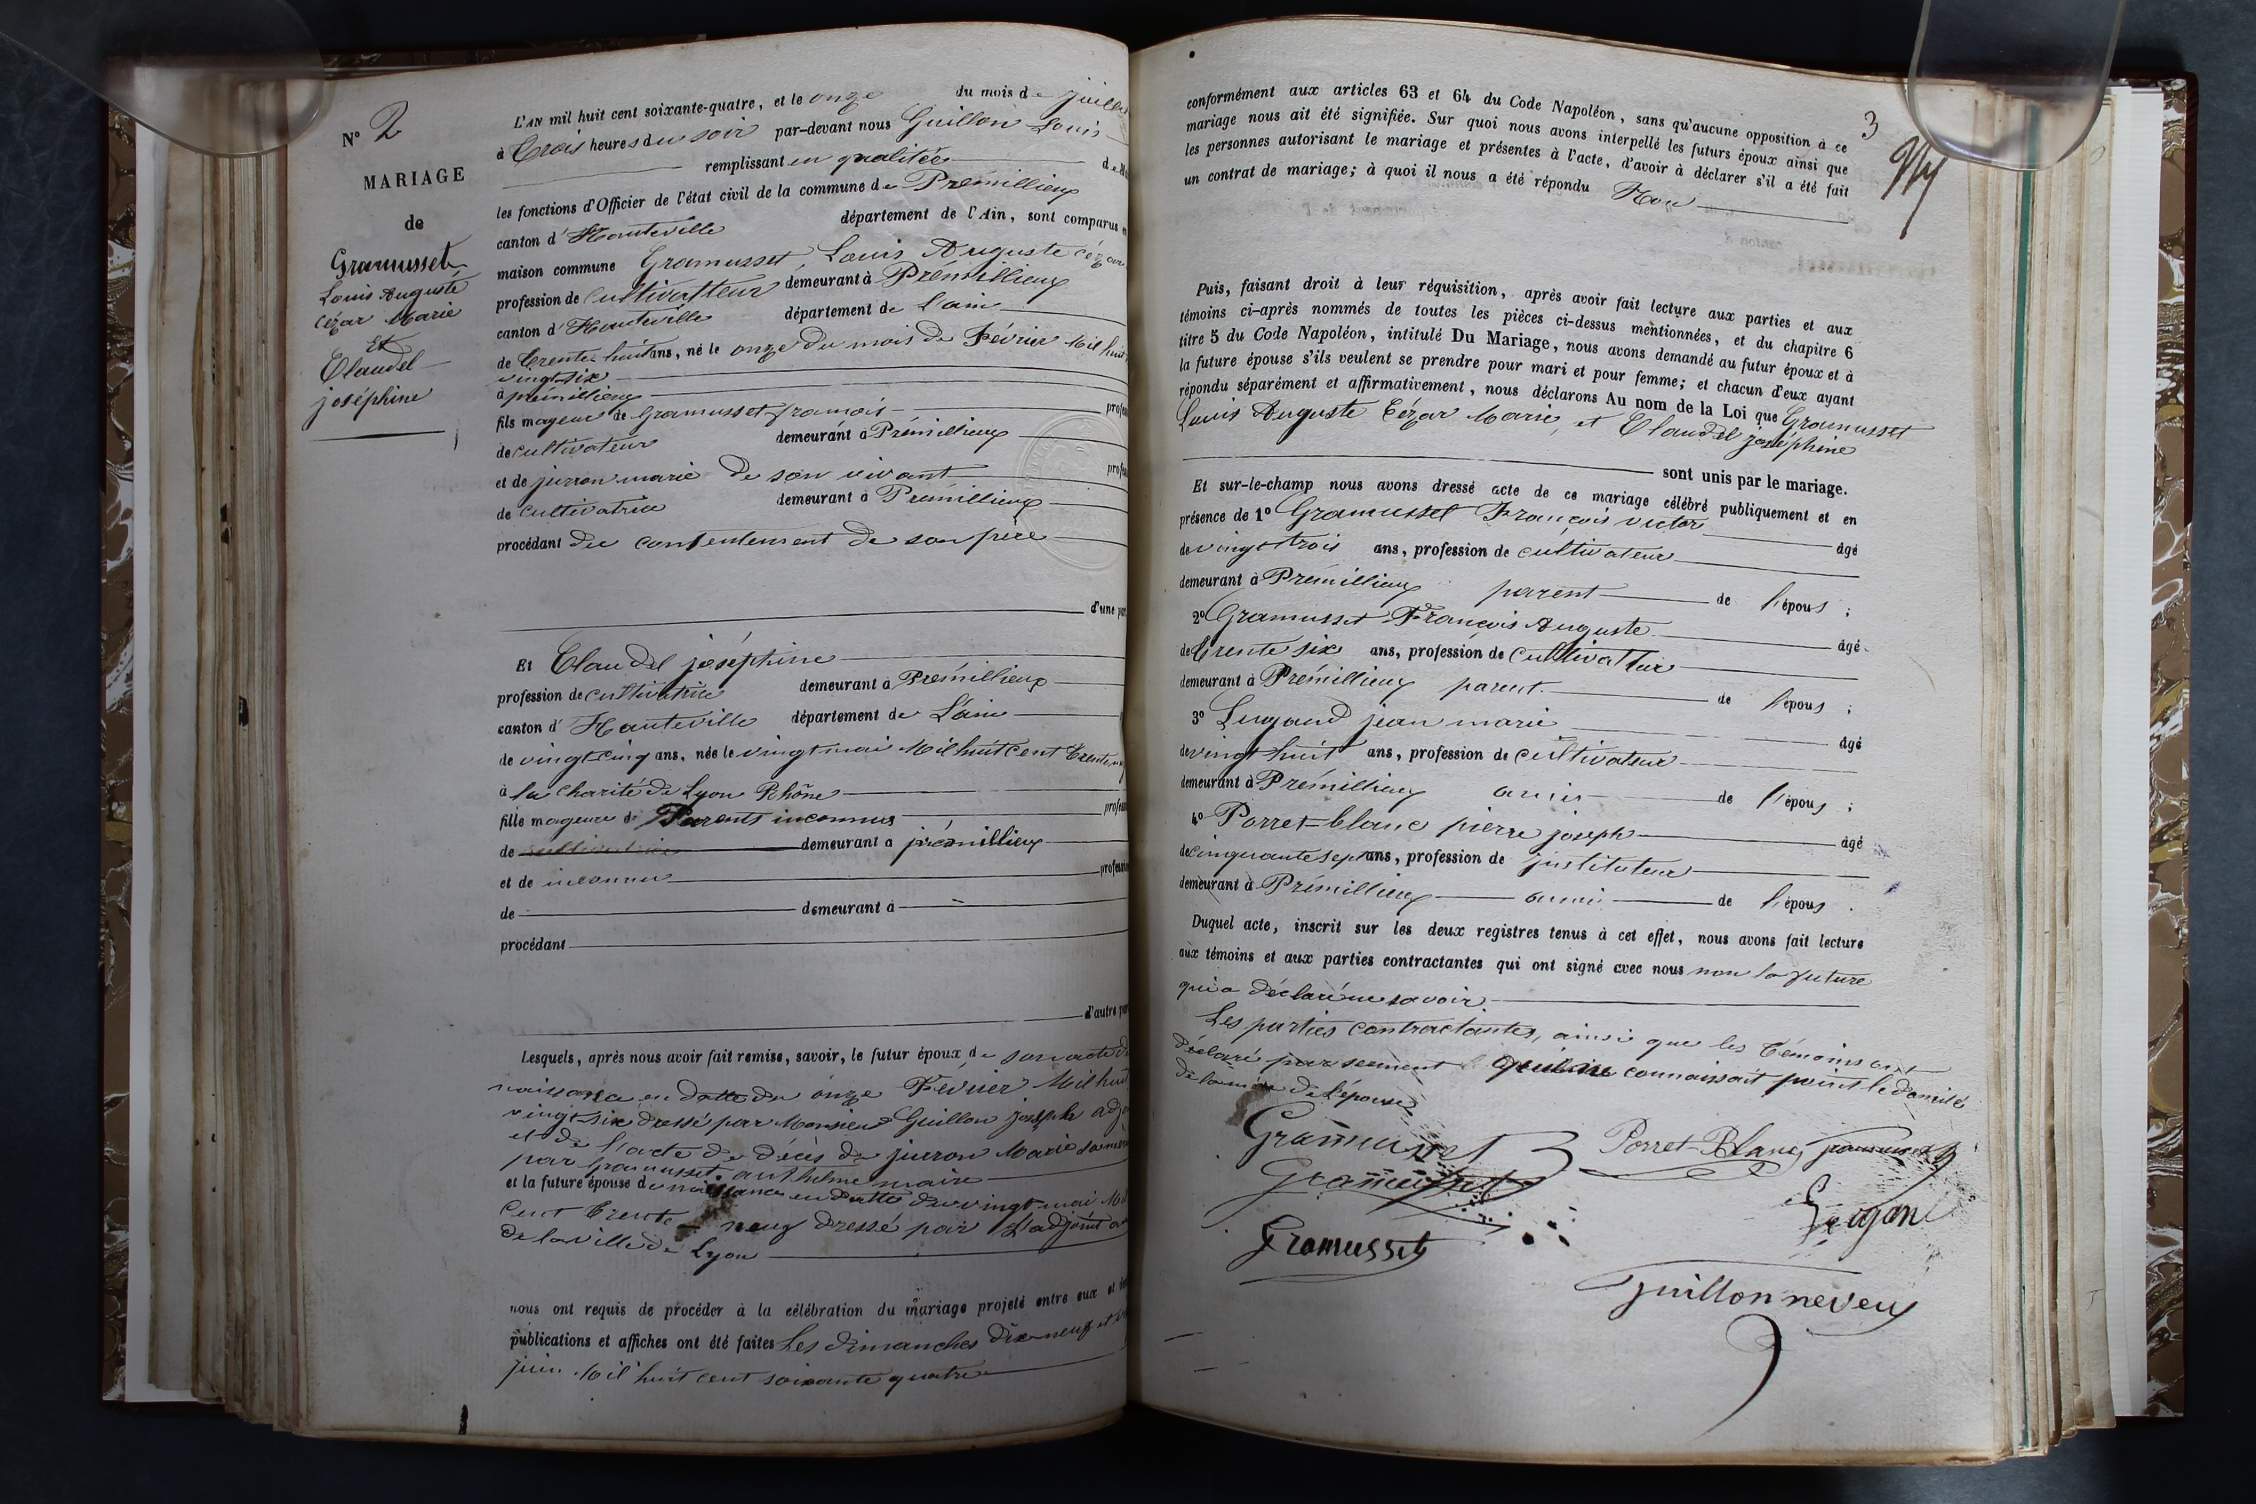 N° 2
MARIAGE
de
Gramusset
Louis Auguste
Cézar Marie
Et
Claudel
joséphine
L'AN mil huit cent soixante-quatre, et le onze du mois de juillet
à Trois heures du soir par-devant nous Guillon Louis
remplissant en qualitée de M
les fonctions d'Officier de l'état civil de la commune de Prémillieux
canton d' Hauteville département de l'Ain, sont comparus en
maison commune Gramusset, Louis Auguste Cézar
profession de Cultivatteur demeurant à Prémillieux
canton d' Hauteville département de L'ain
de Trente huit ans, né le onze du mois de Février Mil huit
vingt six
à prémillieux
fils mageur de Gramusset françois profes
de cultivateur demeurant à Prémillieux
et de jurron marie de son vivant profes
de cultivatrice demeurant à Prémillieux
procédant du consentement de son père
d'une par
Et Claudel joséphine
profession de cultivatrice demeurant à Prémillieux
canton d' Hauteville département de L'ain
de vingt cinq ans, née le vingt mai Mil huit cent Trente neuf
à la charité de Lyon Rhône
fille mageure de Parents inconnus profess
de demeurant à prémillieux
et de inconnu profession
de demeurant à
procédant
d'autre par
Lesquels, après nous avoir fait remise, savoir, le futur époux de son acte de
naissance en datte du onze Février Mil huit
vingt-six dressé par Monsieur Guillon joseph adj
et de l'acte de décès de jurron Marie sa mère
par Gramusset anthelme maire
et la future épouse de naissance en datte du vingt mai Mil
Cent Trente-neuf dressé par L'adjoint au
de la ville de Lyon
nous ont requis de procéder à la célébration du mariage projeté entre eux et
publications et affiches ont été faites Les dimanches dix-neuf et
juin Mil huit cent soixante quatre
3
conformément aux articles 63 et 64 du Code Napoléon, sans qu'aucune opposition à ce
mariage nous ait été signifiée. Sur quoi nous avons interpellé les futurs époux ainsi que
les personnes autorisant le mariage et présentes à l'acte, d'avoir à déclarer s'il a été fait
un contrat de mariage; à quoi il nous a été répondu Non
Puis, faisant droit à leur réquisition, après avoir fait lecture aux parties et aux
témoins ci-après nommés de toutes les pièces ci-dessus mentionnées, et du chapitre 6
titre 5 du Code Napoléon, intitulé Du Mariage, nous avons demandé au futur époux et à
la future épouse s'ils veulent se prendre pour mari et pour femme; et chacun d'eux ayant
répondu séparément et affirmativement, nous déclarons Au nom de la Loi que Gramusset
Louis Auguste Cézar Marie, et Claudel joséphine
sont unis par le mariage.
Et sur-le-champ nous avons dressé acte de ce mariage célébré publiquement et en
présence de 1° Gramusset François victor âgé
de vingt trois ans, profession de cultivateur
demeurant à Prémillieux parent de l'épous ;
2° Gramusset François Auguste âgé
de Trente six ans, profession de Cultivatteur
demeurant à Prémillieux parent de l'épous ;
3° Lugand jean marie âgé
de vingt huit ans, profession de cultivateur
demeurant à Prémillieux amis de l'épous ;
4° Porret-blanc pierre joseph âgé
de cinquante sept ans, profession de justituteur
demeurant à Prémillieux ami de l'épous .
Duquel acte, inscrit sur les deux registres tenus à cet effet, nous avons fait lecture
aux témoins et aux parties contractantes qui ont signé avec nous non la future
qui a déclaré ne savoir
Les parties contractantes, ainsi que les Témoins ont
déclaré par serment connaissait point le domicile
de la mère de l'épouse
Gramusset
Porret-Blanc
Gramusset
Gramusset
Lugand
Gramusset
Guillon neveu